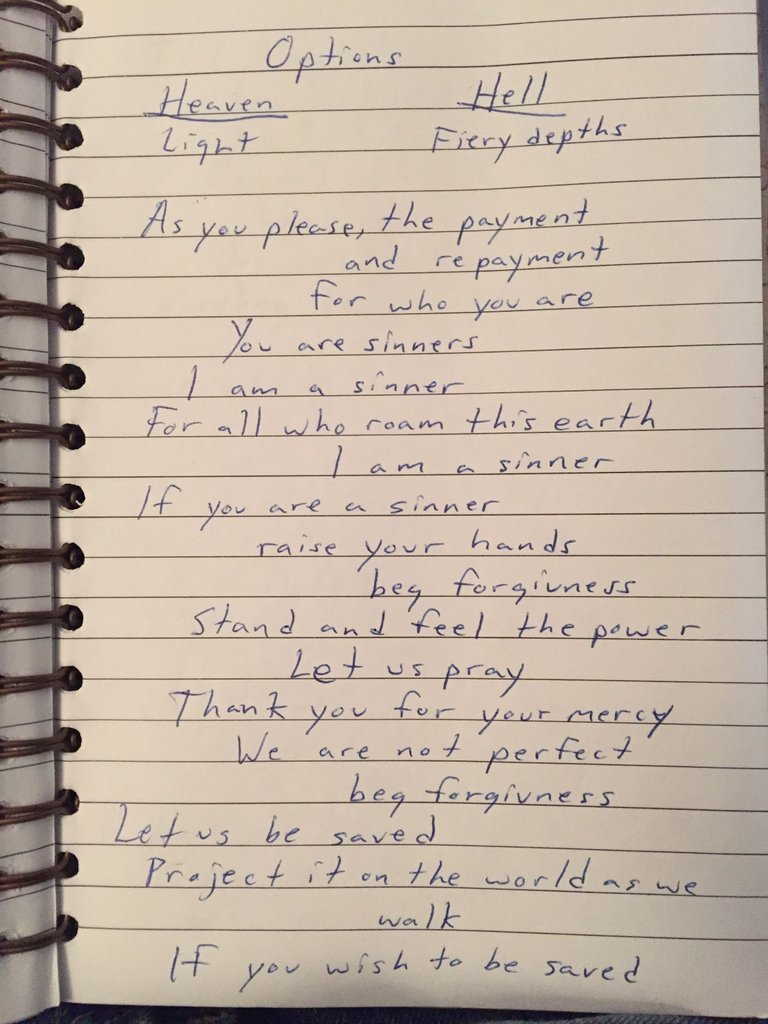 Options
Heaven Hell
Light Fiery depths
As you please, the payment
and repayment
for who you are
You are sinners
I am a sinner
For all who roam this earth
I am a sinner
If you are a sinner
raise your hands
beg forgivness
Stand and feel the power
Let us pray
Thank you for your mercy
We are not perfect
beg forgivness
Let us be saved
Project it on the world as we
walk
If you wish to be saved